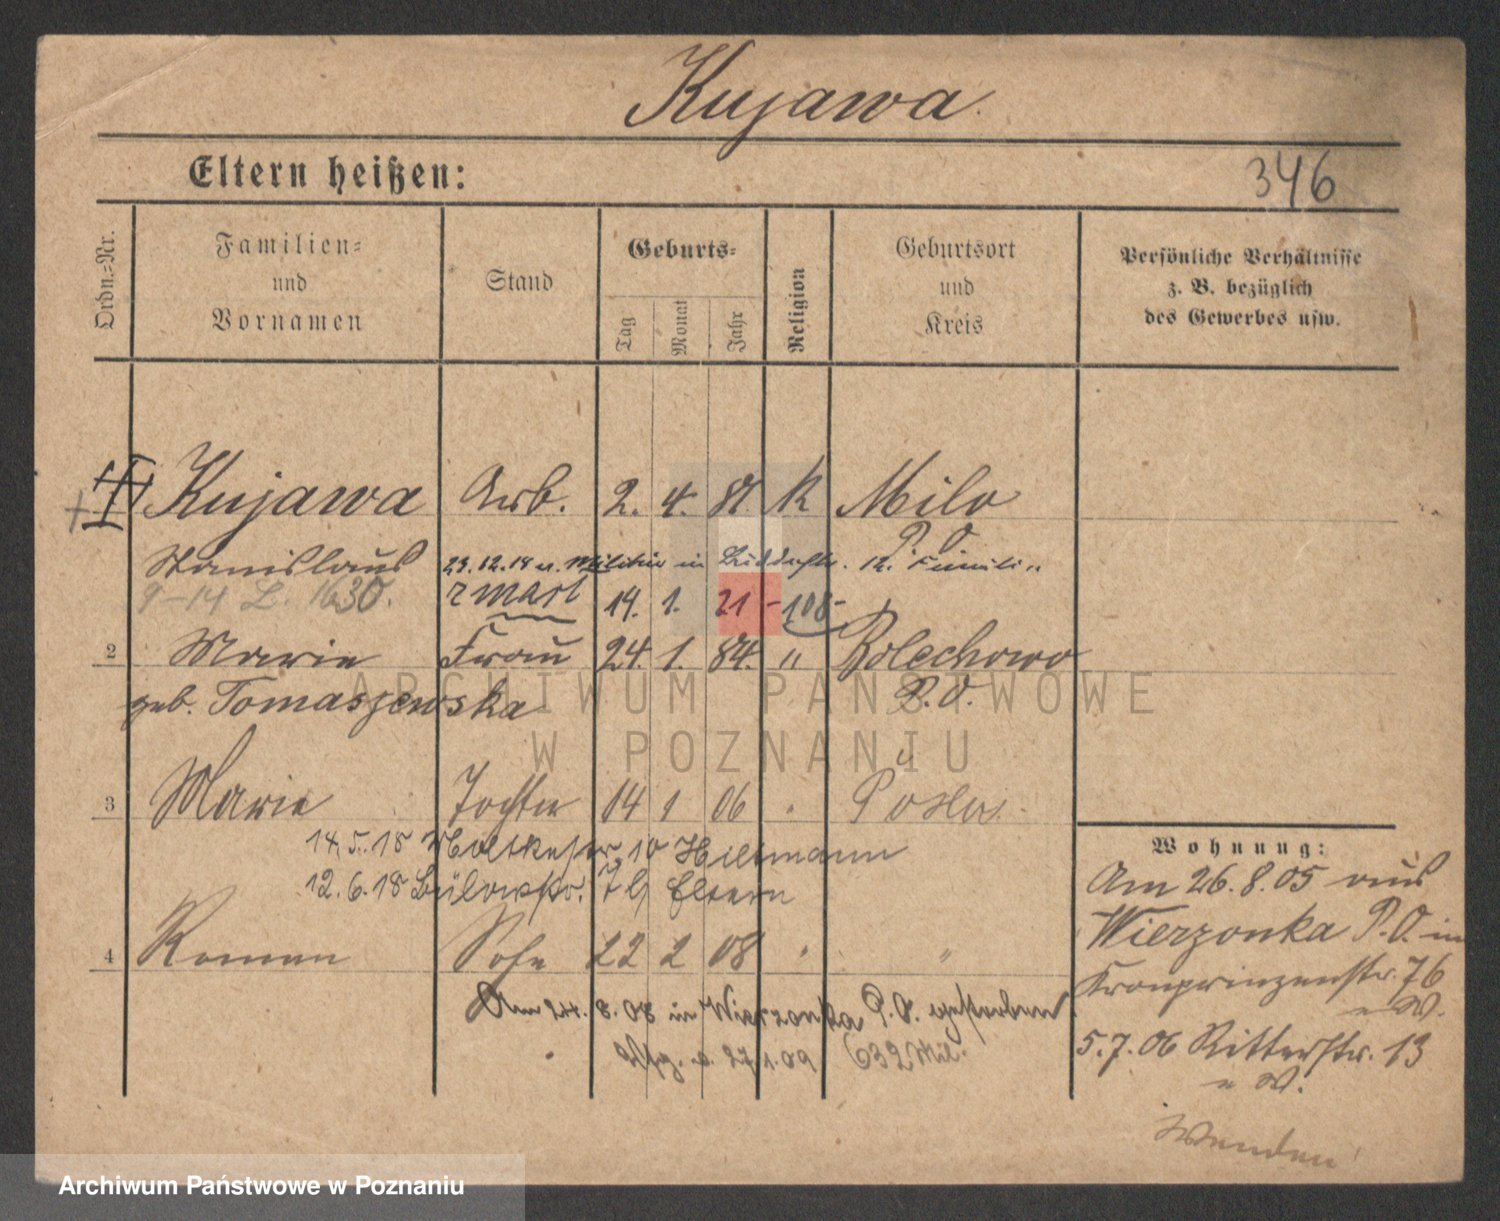 Kujawa
Eltern heißen:
346
Ordn.-Nr.
Familien-
und
Vornamen
Stand
Geburts-
Tag
Monat
Jahr
Religion
Geburtsort
und
Kreis
Persönliche Verhältnisse
z. B. bezüglich
des Gewerbes usw.
Kujawa Arb. 2. 4. 81. K Milo
P. O.
Stanislaus 23.12.18 u. Militär in
9-14 L. 1630.
14. 1. 21 -108-
2 Marie Frau 24. 1. 84. " Bolechowo
geb. Tomaszewska P. O.
3 Marie Tochter 04 1 06 " Posen
14.5.18 Moltkestr. 10 Hillmann
12.6.18 Bülowstr. 7 b/ Eltern
4 Roman Sohn 22 2 08 " "
Am 24. 8. 08 in Wierzonka P. O. gestorben
27.1.09 632 Mil.
Wohnung:
Am 26.8.05 aus
Wierzonka P. O. in
Kronprinzenstr. 76
e W.
5.7.06 Ritterstr. 13
e W.
Wenden!
ARCHIWUM PAŃSTWOWE
W POZNANIU
Archiwum Państwowe w Poznaniu